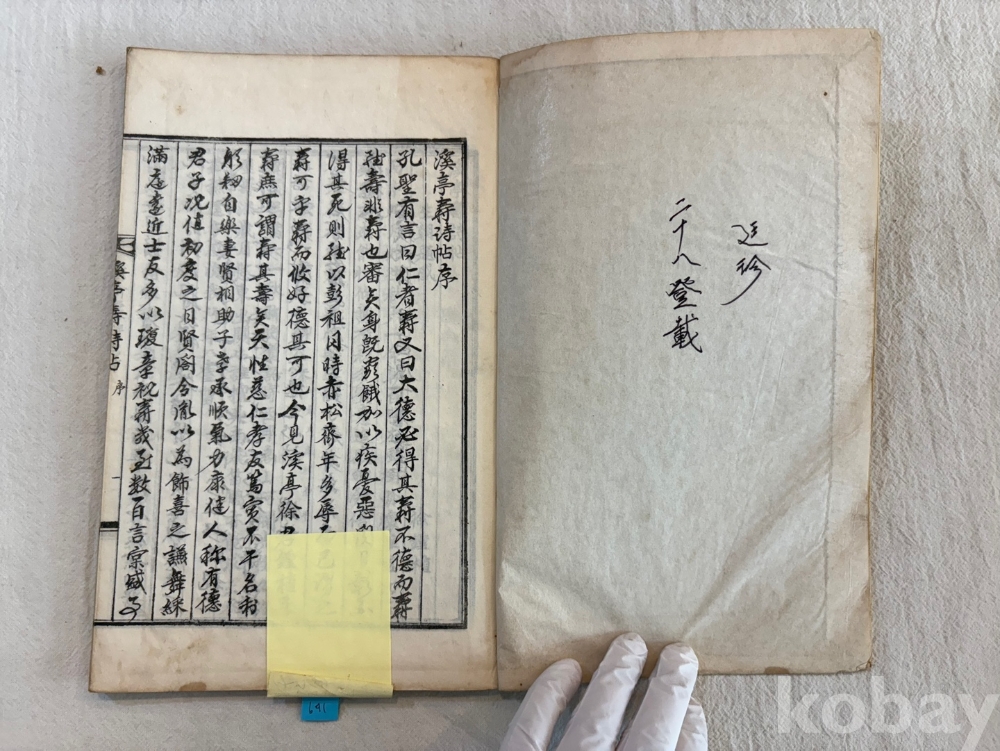 廷珍
二十八登載
溪亭壽詩帖序
孔聖有言曰仁者壽又曰大德必得其壽不德而壽
雖壽非壽也審矣身旣窮餓加以疾憂惡
得其死則雖以彭祖同時赤松齊年多辱而已
壽可字壽而攸好德其可也今見溪亭徐
壽庶可謂壽其壽矣天性慈仁孝友篤實不干名利
躬耕自樂妻賢相助子孝承順氣力康健人称有德
君子况值初度之日賢閤令胤以為飾喜之讌舞綵
滿庭遠近士友多以瓊章祝壽幾至數百言宗戚
溪亭壽詩帖 序 一
641
kobay